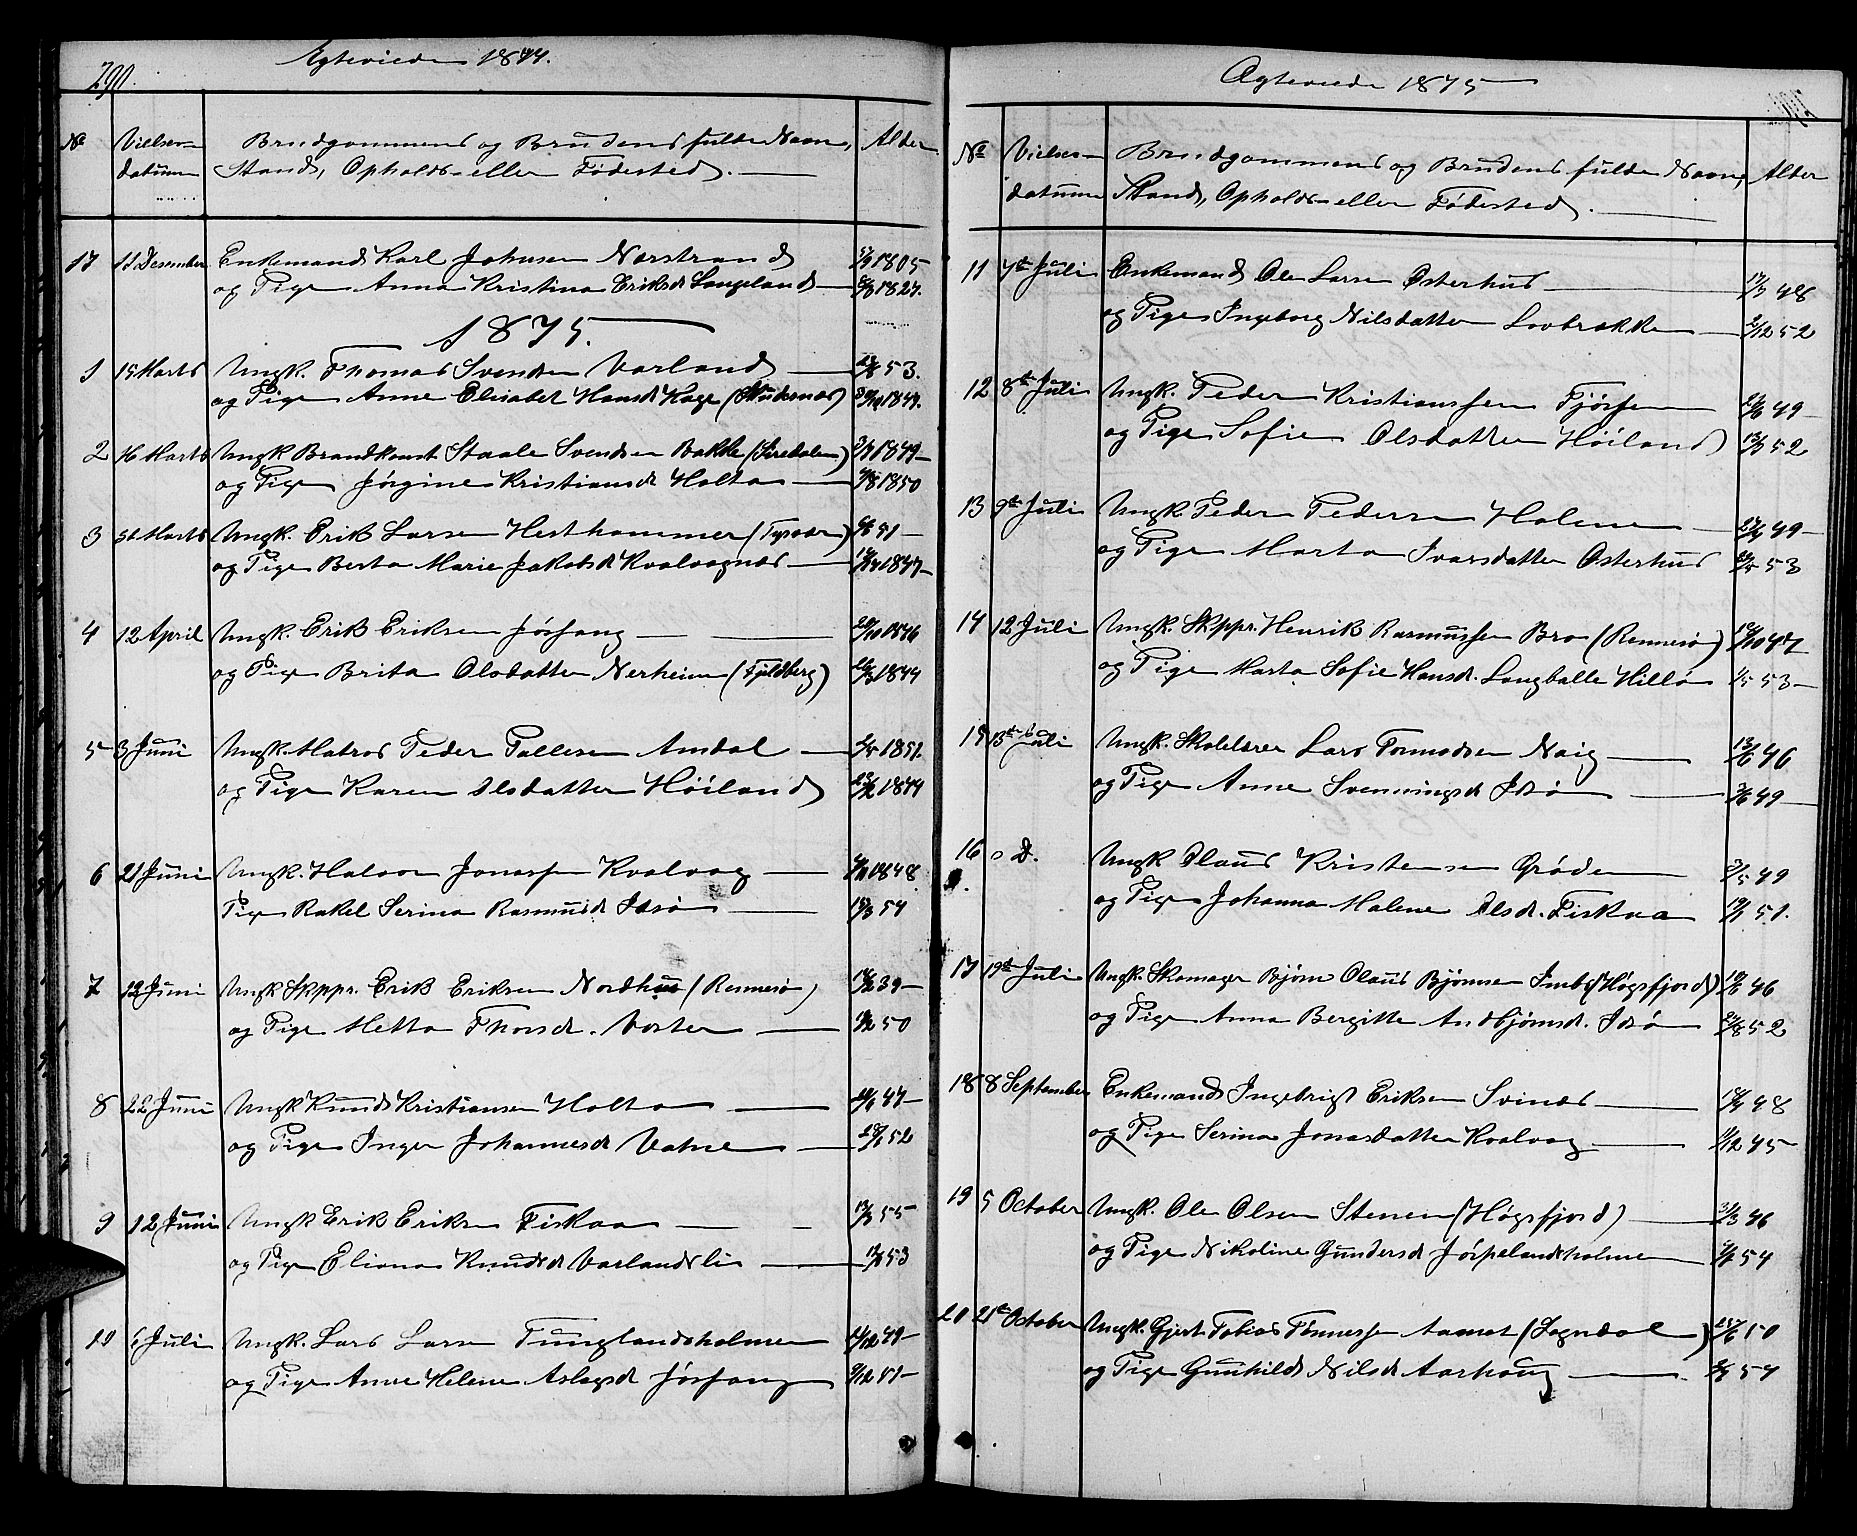 290.
Egteviede 1874.
No Vielses- datum Brudgommens og Brudens fulde Navn, Alder
Stand, Opholds- eller Fødested.
17 11 Desember Enkemand Karl Johnsen Nærstrand 1805
og Pige Anna Kristina Eriksd Langeland 1827.
1875.
1 15 Marts Ungk. Thomas Svendsen Varland 53.
og Pige Anne Elisabet Hansd Hage 1849.
2 16 Marts Ungk Staale Svendsen Bakke (Siredalen) 1849
og Pige Jørgine Kristiansd Holta 4/8 1850
3 31 Marts Ungk. Erik Larsen Hesthammer (Tysvær) 51
og Pige Berta Marie Jakobsd Kvalvagnæs 1847
4 12 April Ungk. Erik Eriksen Jøsang 1846
og Pige Brita Olsdatter Nerheim (Fjeldberg) 1844
5 3 Juni Ungk. Matros Peder Pallesen Amdal 1851.
og Pige Karen Olsdatter Høiland 1844
6 21 Juni Ungk. Halvor Jonassen Kvalvaag 1848
Pige Rakel Serina Rasmusd Idsø 54
7 12 Juni Ungk Skppr. Erik Eriksen Nordhus (Rennesø) 39
og Pige Metta Thorsd. Vostervig 50
8 22 Juni Ungk Knud Kristiansen Holta 47
og Pige Inger Johannesd Vatne 52
9 12 Juni Ungk Erik Eriksen Fiskaa 55
og Pige Eliana Knudsd Varlandsli 53
10 6 Juli Ungk. Lars Larsen Tunglandsholmen 49
og Pige Anne Helene Aslagsd Jøsang 51
Egteviede 1875
No Vielses- datum Brudgommens og Brudens fulde Navn, Alder
Stand, Opholds- eller Fødested.
11 7de Juli Enkemand Ole Larsen Østerhus 48
og Pige Ingeborg Nilsdatter Lovbrække 52
12 8de Juli Ungk. Peder Kristianssen Fjørsen 49
og Pige Sofie Olsdatter Høiland 52
13 9de Juli Ungk. Peder Pedersen Halene 49
og Pige Marta Ivarsdatter Østerhus 53
14 12 Juli Ungk. Skppr. Henrik Rasmussen Bro (Rennesø) 47
og Pige Marta Sofie Hansd. Langballe Hillø 1/5 53
15 13de Juli Ungk. Skolelærer Lars Tormodsen Naig 46
og Pige Anne Svenningsd Idsø 49
16 o D. Ungk Olaus Kristensen Grøden 49
og Pige Johanna Malene Olsd. Fiskaa 51.
17 19de Juli Ungk. Skomager Bjørn Olaus Bjørnsen (Høgsfjord) 46
og Pige Anna Bergitte Asbjørnsd. Idsø 52
18 8 September Enkemand Ingebrigt Eriksen Svinæs 48
og Pige Serina Jonasdatter Kvalvaag 45
19 5 October Ungk. Ole Olsen Stenen (Høgsfjord) 46
og Pige Nikoline Gundersd Jørpelandsholmen 54
20 21de October Ungk. Gjert Tobias Tønnessen Aamot (Sogndal) 50
og Pige Gunhild Nilsd Aarhoug 54